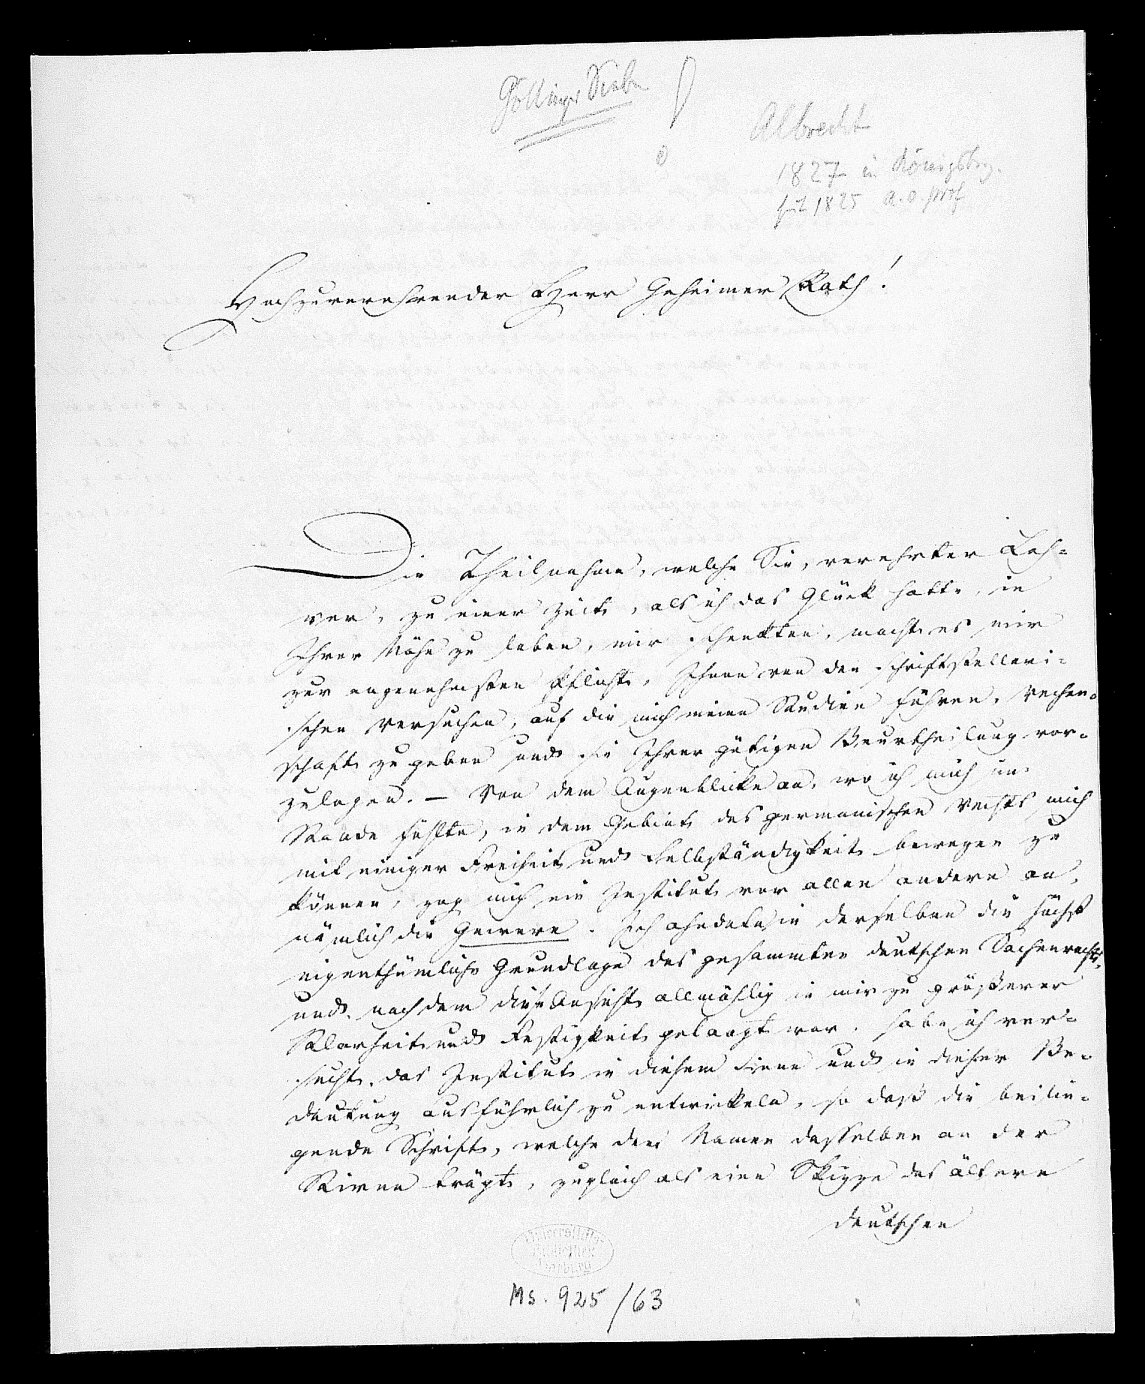 Göttinger Sieben
Albrecht
1827 in Königsbg.
seit 1825 a. o. Prof
Hochzuverehrender Herr Geheimer Rath!
Die Theilnahme, welche Sie, verehrter Leh-
rer, zu einer Zeit, als ich das Glück hatte, in
Ihrer Nähe zu leben, mir schenkten, macht es mir
zur angenehmsten Pflicht, Ihnen von den schriftstelleri-
schen Versuchen, auf die mich meine Studien führen, Rechen-
schaft zu geben und sie Ihrer gütigen Beurtheilung vor-
zulegen. – Von dem Augenblicke an, wo ich mich im
Stande fühlte, in dem Gebiete des germanischen Rechts mich
mit einiger Freiheit und Selbständigkeit bewegen zu
können, zog mich ein Institut vor allen andern an,
nämlich die Gewere. Ich ahndete in derselben die höchst
eigenthümliche Grundlage des gesammten deutschen Sachenrechts,
und nachdem diese Ansicht allmählig in mir zu größerer
Klarheit und Festigkeit gelangt war, habe ich ver-
sucht, das Institut in diesem Sinne und in dieser Be-
deutung ausführlich zu entwickeln, so daß die beilie-
gende Schrift, welche den Namen desselben an der
Stirne trägt, zugleich als eine Skizze des ältern
deutschen
Universitäts
Bibliothek
Marburg
Ms. 925/63